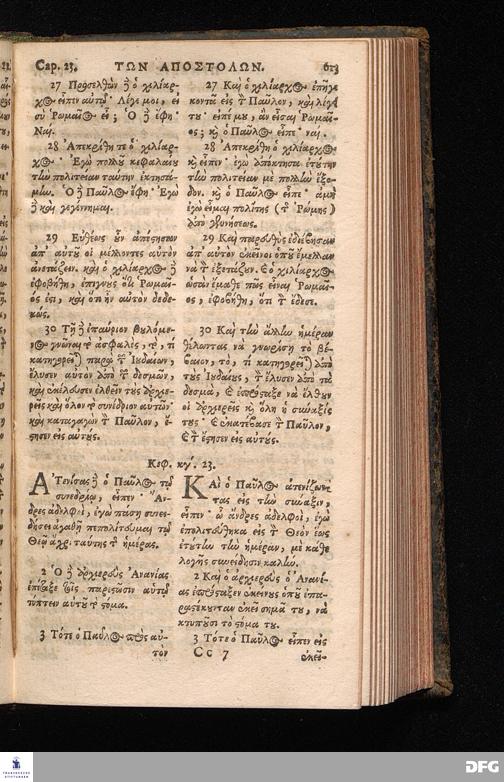 Cap. 23. ΤΩΝ ΑΠΟΣΤΟΛΩΝ. 613
27 Προσελθὼν δὲ ὁ χιλίαρ-
χος εἶπεν αὐτῷ· Λέγε μοι, εἰ
σὺ Ρωμαῖος εἶ; Ὁ δὲ ἔφη·
Ναί.
28 Ἀπεκρίθη τε ὁ χιλίαρ-
χος· Ἐγὼ πολλοῦ κεφαλαίου
τὴν πολιτείαν ταύτην ἐκτησά-
μην. Ὁ δὲ Παῦλος ἔφη· Ἐγὼ
δὲ καὶ γεγέννημαι.
29 Εὐθέως οὖν ἀπέστησαν
ἀπ' αὐτοῦ οἱ μέλλοντες αὐτὸν
ἀνετάζειν. καὶ ὁ χιλίαρχος δὲ
ἐφοβήθη, ἐπιγνοὺς ὅτι Ρωμαῖ-
ός ἐστι, καὶ ὅτι ἦν αὐτὸν δεδε-
κώς.
30 Τῇ δὲ ἐπαύριον βουλόμε-
νος γνῶναι τὸ ἀσφαλὲς, τὸ, τί
κατηγορεῖται παρὰ τῶν Ιουδαίων,
ἔλυσεν αὐτὸν ἀπὸ τῶν δεσμῶν,
καὶ ἐκέλευσεν ἐλθεῖν τοὺς ἀρχιε-
ρεῖς καὶ ὅλον τὸ συνέδριον αὐτῶν·
καὶ καταγαγὼν τὸν Παῦλον, ἔ-
στησεν εἰς αὐτούς.
27 Καὶ ὁ χιλίαρχος ἐπῆγε
κοντὰ εἰς τὸν Παῦλον, καὶ λέγει
του· εἰπέ μου, ἂν εἶσαι Ρωμαῖ-
ος; καὶ ὁ Παῦλος εἶπε· ναί.
28 Ἀπεκρίθη ὁ χιλίαρχος
καὶ εἶπεν· ἐγὼ ἀπόκτησα ἐτούτην
τὴν πολιτείαν μὲ πολλὴν ἔξο-
δον. καὶ ὁ Παῦλος εἶπε· ἀμὴ
ἐγὼ εἶμαι πολίτης (τῆς Ρώμης)
ἀπὸ γεννήσεως.
29 Καὶ παρευθὺς ἐδιέβησαν
ἀπ' αὐτὸν ἐκεῖνοι ὁποῦ ἔμελλαν
νὰ τὸν ἐξετάξουν. καὶ ὁ χιλίαρχος
ὡσὰν ἔμαθε πῶς εἶναι Ρωμαῖ-
ος, ἐφοβήθη, ὅτι τὸν ἔδεσε.
30 Καὶ τὴν ἄλλην ἡμέραν
θέλωντας νὰ γνωρίσῃ τὸ βέ-
βαιον, τὸ, τί κατηγορεῖται ἀπὸ
τοὺς Ιουδαίους, τὸν ἔλυσεν ἀπὸ τὰ
δεσμὰ, καὶ ἐπρόσταξε νὰ ἔλθουν
οἱ ἀρχιερεῖς καὶ ὅλη ἡ σύναξίς
τους· καὶ ἐκατέβασε τὸν Παῦλον,
καὶ τὸν ἔστησεν εἰς αὐτούς.
Κεφ. κγ'. 23.
ΑΤενίσας δὲ ὁ Παῦλος τῷ
συνεδρίῳ, εἶπεν· Ἄν-
δρες ἀδελφοὶ, ἐγὼ πάσῃ συνει-
δήσει ἀγαθῇ πεπολίτευμαι τῷ
Θεῷ ἄχρι ταύτης τῆς ἡμέρας.
2 Ὁ δὲ ἀρχιερεὺς Ἀνανίας
ἐπέταξε τοῖς παρεστῶσιν αὐτῷ
τύπτειν αὐτοῦ τὸ στόμα.
3 Τότε ὁ Παῦλος πρὸς αὐ-
τὸν
ΚΑὶ ὁ Παῦλος ἀτενίζων-
τας εἰς τὴν σύναξιν,
εἶπεν· ὦ ἄνδρες ἀδελφοὶ, ἐγὼ
ἐπολιτεύθηκα εἰς τὸν Θεὸν ἕως
ἐτούτην τὴν ἡμέραν, μὲ κάθε
λογῆς συνείδησιν καλήν.
2 Καὶ ὁ ἀρχιερεὺς ὁ Ἀνανί-
ας ἐπρόσταξεν ἐκείνους ὁποῦ ἐπα-
ραστέκουνταν ἐκεῖ σημά του, νὰ
κτυποῦσι τὸ στόμα του.
3 Τότε ὁ Παῦλος εἶπεν εἰς
Cc 7 ἐκεῖ-
FRANCKESCHE STIFTUNGEN
DFG